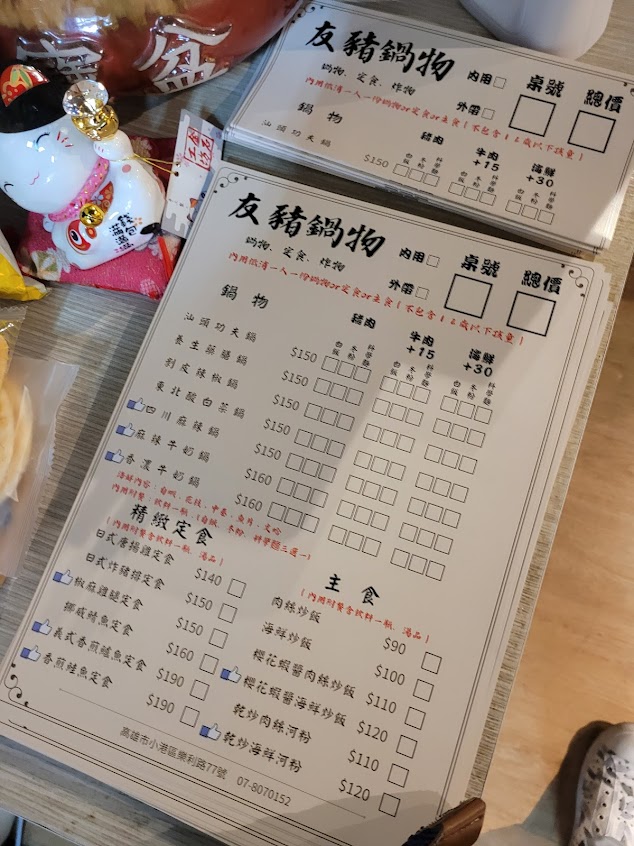 友豬鍋物
鍋物、定食、炸物
內用
外帶
桌號
總價
內用低消一人一份鍋物or定食or主食(不包含12歲以下孩童)
鍋物
豬肉
牛肉
+15
海鮮
+30
白飯 冬粉 科學麵
白飯 冬粉 科學麵
白飯 冬粉 科學麵
汕頭功夫鍋 $150
友豬鍋物
鍋物、定食、炸物
內用
外帶
桌號
總價
內用低消一人一份鍋物or定食or主食(不包含12歲以下孩童)
鍋物
豬肉
牛肉
+15
海鮮
+30
白飯 冬粉 科學麵
白飯 冬粉 科學麵
白飯 冬粉 科學麵
汕頭功夫鍋 $150
養生藥膳鍋 $150
剝皮辣椒鍋 $150
東北酸白菜鍋 $150
四川麻辣鍋 $150
麻辣牛奶鍋 $160
香濃牛奶鍋 $160
海鮮內容:白蝦、花枝、中卷、魚片、文蛤
內用附餐:飲料一瓶、(白飯、冬粉、科學麵三選一)
精緻定食
(內用附餐含飲料一瓶、湯品)
日式唐揚雞定食 $140
日式炸豬排定食 $150
椒麻雞腿定食 $150
挪威鯖魚定食 $160
義式香煎鱸魚定食 $190
香煎鮭魚定食 $190
主食
(內用附餐含飲料一瓶、湯品)
肉絲炒飯 $90
海鮮炒飯 $100
櫻花蝦醬肉絲炒飯 $110
櫻花蝦醬海鮮炒飯 $120
乾炒肉絲河粉 $110
乾炒海鮮河粉 $120
高雄市小港區樂利路77號 07-8070152